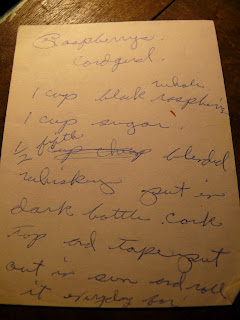 Raspberrys
Cordgeral.
1 cup black whole raspberis
1 cup sugar.
1/2 fifth cup cheap blended
whiskey put in
dark bottle. cork
top and tape put
out in sun and roll
it everyday for